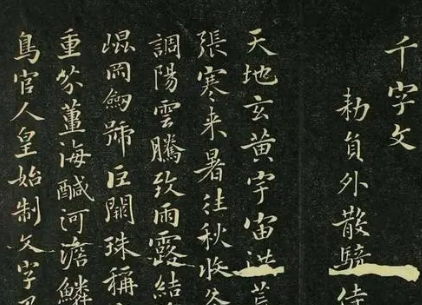 千字文
勑員外散騎侍
天地玄黃宇宙洪荒
張寒来暑往秋收冬
調陽雲騰致雨露結
崐岡劒號巨闕珠稱
重芥薑海鹹河淡鱗
鳥官人皇始制文字乃